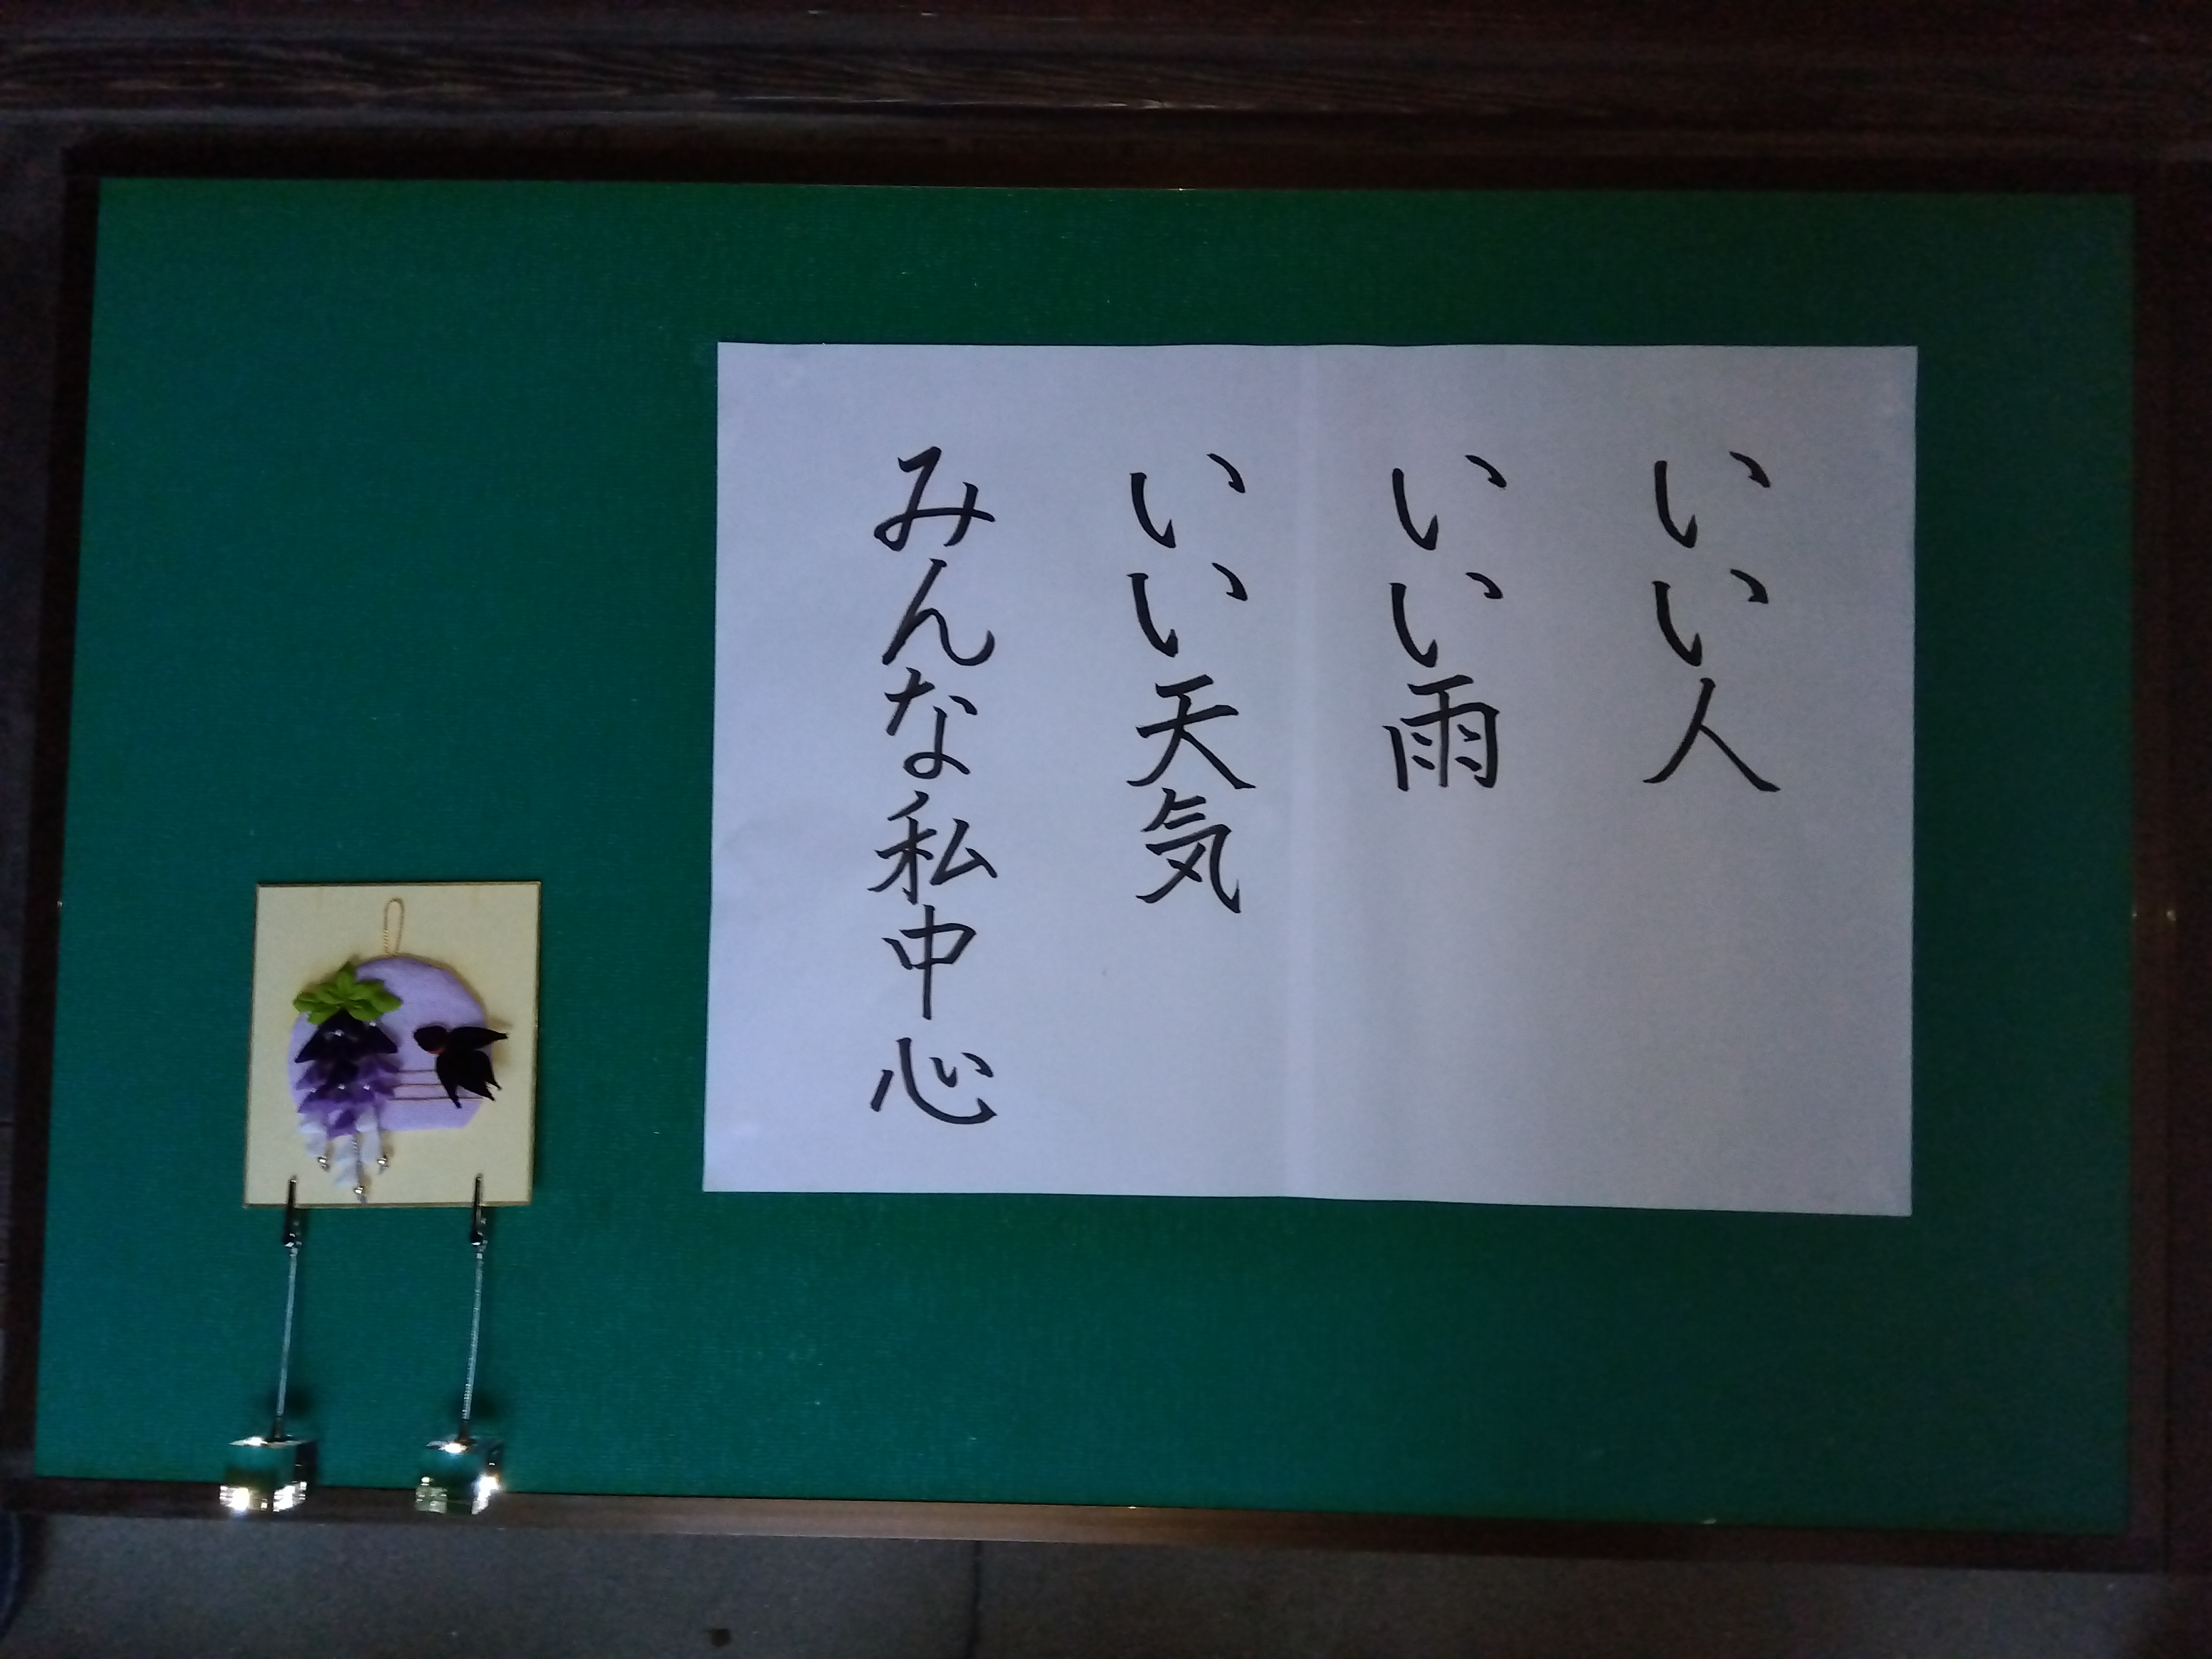 いい人
いい雨
いい天気
みんな私中心